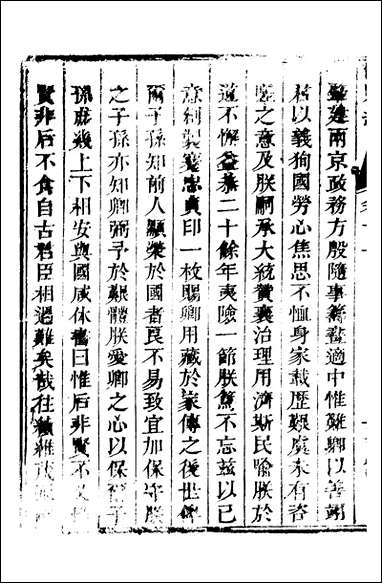 肇建兩京政務方殷隨事籌畫適中惟難卿以善翊
君以義狥國勞心焦思不恤身家載歷艱虞未有咨
嗟之意及朕嗣承大統贊襄治理用濟斯民喻朕於
道不懈益恭二十餘年夷險一節朕篤不忘兹以已
意創製蹇忠貞印一枚賜卿用藏於家傳之後世俾
爾子孫知前人顯榮於國者良不易致宜加保守朕
之子孫亦知卿弼予於艱體朕愛卿之心以保爾子
孫庶幾上下相安與國咸休書曰惟后非賢不乂惟
賢非后不食自古君臣相遇難矣哉往績維茂